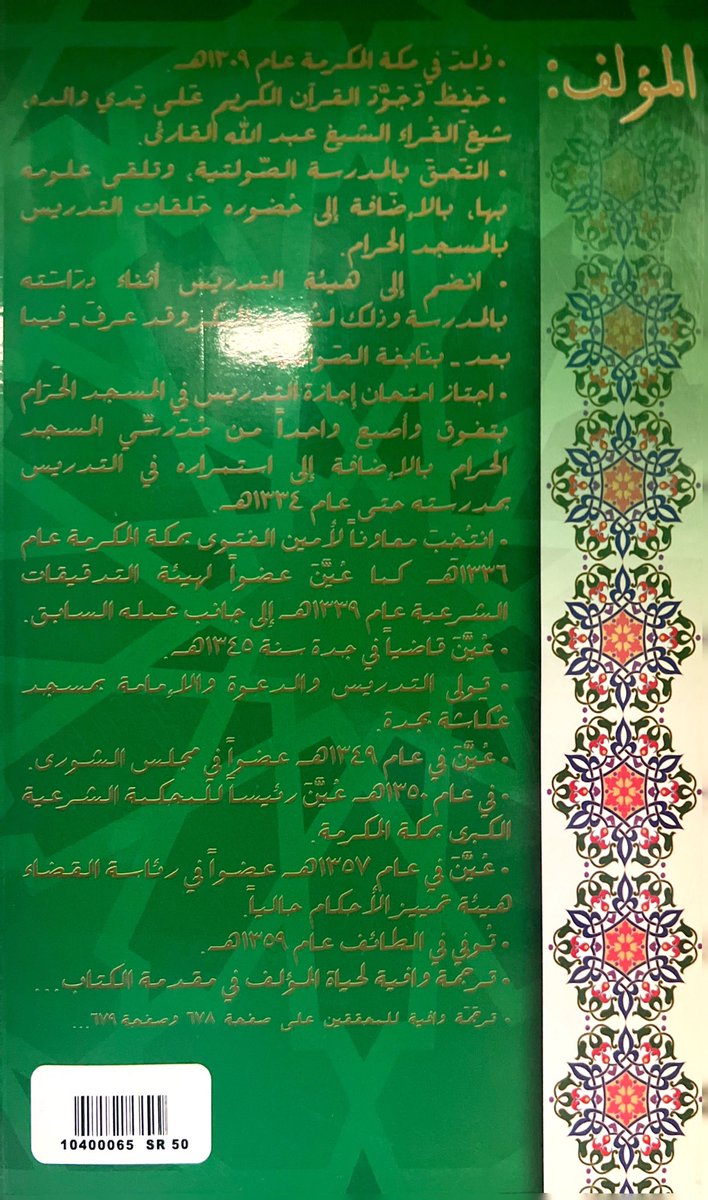 المؤلف:
• وُلد في مكة المكرمة عام ١٣٠٩هـ.
• حَفِظَ وَجَوَّدَ القرآن الكريم عَلى يَدي والده،
شيخ القُراء الشيخ عبد الله القارئ.
• التَحقَ بالمدرسة الصّولتية، وتلقى علومه
بها، بالإضَافة إلى حُضوره حَلقات التدريس
بالمسجد الحرام.
• انضم إلى هيئة التدريس أثناء دراسَته
بالمدرسة وذلك وقد عرفَ ـ فيما
بعد ـ بنابغة
• اجتاز امتحان إجازة التدريس في المسجد الحَرام
بتفوق وأصبح واحداً من مُدَرسّي المسجد
الحَرام بالإضافة إلى استمراره في التدريس
بمدرسته حتى عام ١٣٣٤هـ.
• انتُخبَ معاوناً لأمين الفتوى بمكة المكرمة عام
١٣٣٦هـ كما عُيَّنَ عضواً لهيئة التدقيقات
الشرعية عام ١٣٣٩هـ إلى جانب عمله السابق.
• عُيَّنَ قاضياً في جدة سنة ١٣٤٥هـ.
• تولى التدريس والدعوة والإمامة بمسجد
عكاشة بجدة.
• عُيَّنَ في عام ١٣٤٩هـ عضواً في مجلس الشورى.
• في عام ١٣٥٠هـ عُيَّنَ رئيساً للمحكمة الشرعية
الكبرى بمكة المكرمة.
• عُيَّنَ في عام ١٣٥٧هـ عضواً في رئاسة القضاء
هيئة تمييز الأحكام حالياً.
• توفي في الطائف عام ١٣٥٩هـ.
• ترجمة وافية لحياة المؤلف في مقدمة الكتاب...
• ترجمَة وافية للمحققين على صفحة ٦٧٨ وصفحة ٦٧٩...
10400065 SR 50